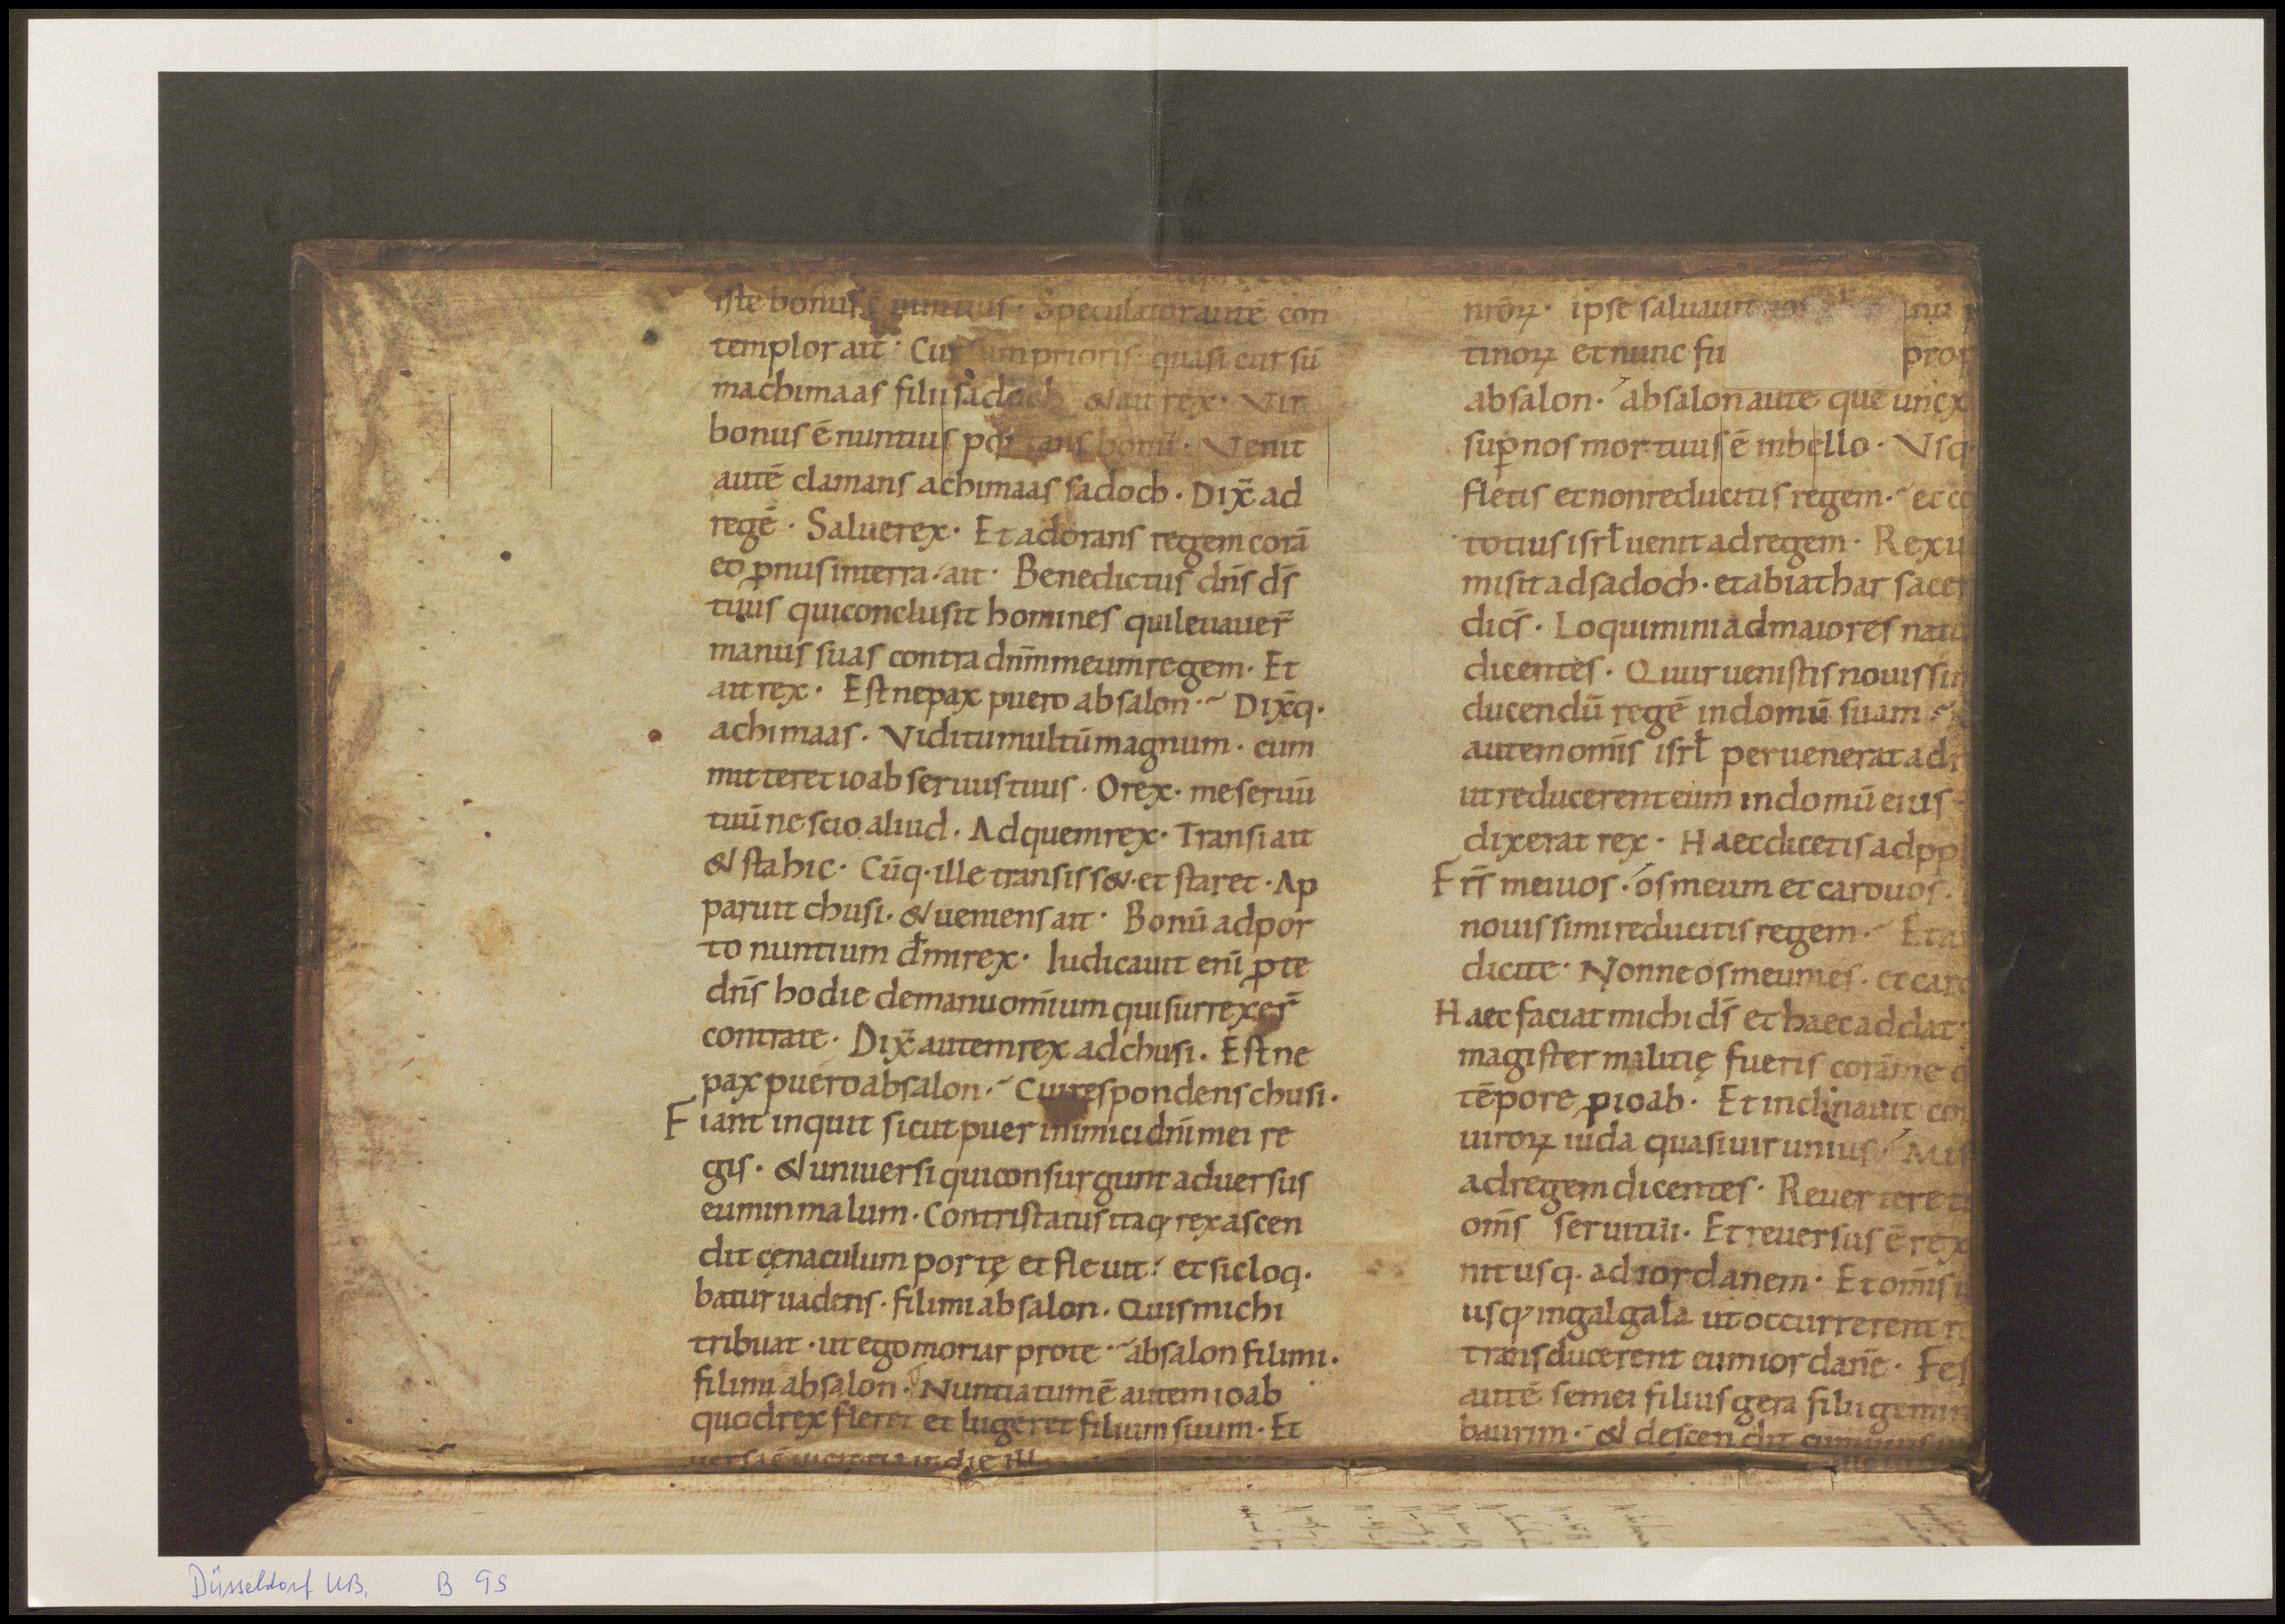 iste bonus ē nuntius · Speculator autē con
templor ait · Cursum prioris · quasi cursū
machimaas filii sadoch &ait rex · Vir
bonus ē nuntius portans bonū · Venit
autē clamans achimaas sadoch · Dix̄ ad
regē · Salue rex · Et adorans regem corā
eo p̱nus in terra · ait · Benedictus dn̄s ds̄
tuus qui conclusit homines qui leuauer̄
manus suas contra dnm̄ meum regem · Et
ait rex · Estne pax puero absalon · Dix̄q·
achimaas · Vidi tumultū magnum · cum
mitteret ioab seruus tuus · O rex · me seruū
tuū nescio aliud · Ad quem rex · Transi ait
& sta hic · Cūq· ille transiss& · et staret · Ap
paruit chusi · & ueniens ait · Bonū adpor
to nuntium dn̄e mi rex · Iudicauit eni p̱ te
dn̄s hodie de manu omīum qui surrexer̄
contra te · Dix̄ autem rex ad chusi · Estne
pax puero absalon · Cui respondens chusi ·
Fiant inquit sicut puer inimici dni mei re
gis · & uniuersi qui consurgunt aduersus
eum in malum · Contristatus itaq· rex ascen
dit cęnaculum portę et fleuit · et sic loq·
batur uadens · fili mi absalon · Quis michi
tribuat · ut ego moriar pro te · absalon fili mi ·
fili mi absalon · Nuntiatum ē autem ioab
quod rex fleret et lugeret filium suum · Et
uersa ē uictoria in die ill
nr̄oꝝ · ipse saluauit nos
tinoꝝ et nunc fu
absalon · absalon autē quē unx
sup̱ nos mortuus ē in bello · Vsq·
fletis et non reducitis regem · et co
totius isrl̄ uenit ad regem · Rex u
misit ad sadoch · et abiathar sacer
dics̄ · Loquimini ad maiores natu
dicentes · Quur uenistis nouissim
ducendū regē in domū suam
autem omīs isrl̄ peruenerat ad r
ut reducerent eum in domū eius
dixerat rex · Haec dicetis ad pp
Frs̄ mei uos · os meum et caro uos ·
nouissimi reducitis regem · Et a
dicite · Nonne os meum es · et caro
Haec faciat michi ds̄ et haec addat
magister malitię fueris corā me o
tēpore p̱ ioab · Et inclinauit cor
uiroꝝ iuda quasi uir unius · Mis
ad regem dicentes · Reuertere tu
oms̄ serui tui · Et reuersus ē rex
nit usq· ad iordanem · Et omīs i
usq· in galgala ut occurrerent r
transducerent eum iordanē · Fes
autē semei filius gera filii gemin
baurim · & descendit cum uiris
Düsseldorf UB. B 95